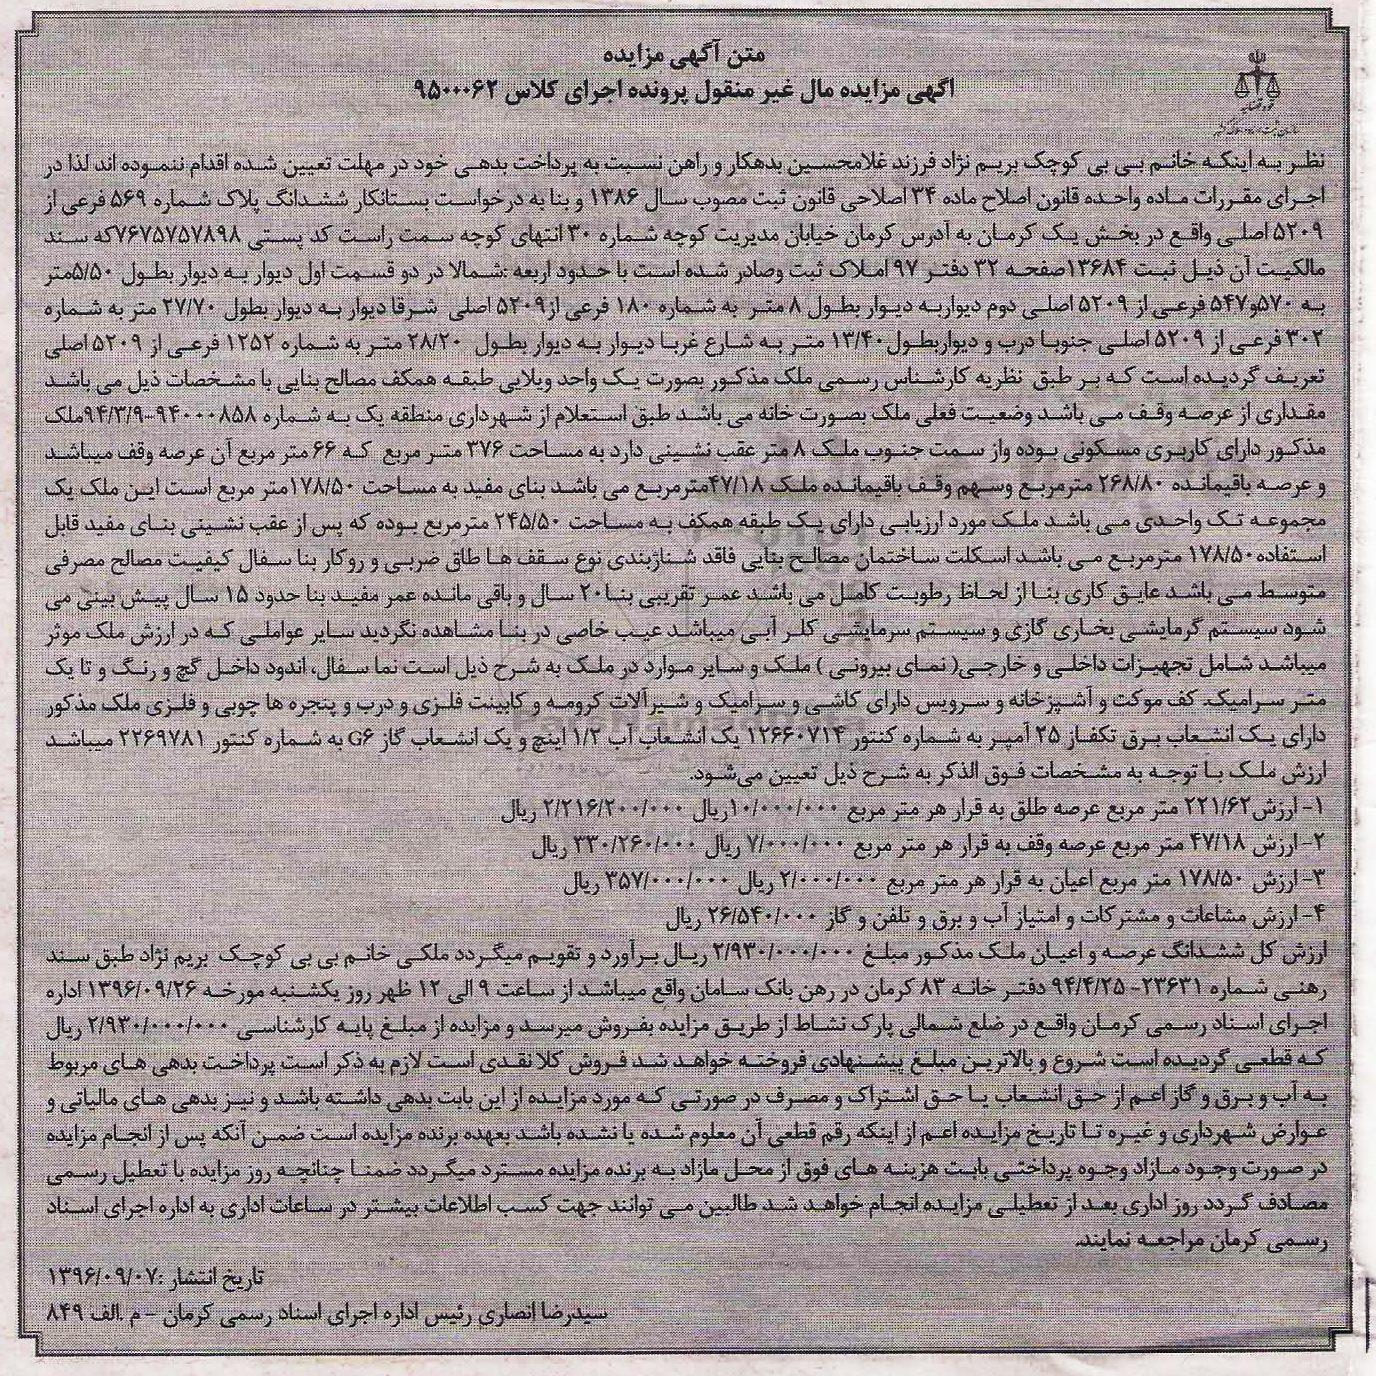 متن آگهی مزایده
اگهی مزایده مال غیر منقول پرونده اجرای کلاس ۹۵۰۰۰۶۲
نظر به اینکه خانم بی بی کوچک بریم نژاد فرزند غلامحسین بدهکار و راهن نسبت به پرداخت بدهی خود در مهلت تعیین شده اقدام ننموده اند لذا در
اجرای مقررات ماده واحده قانون اصلاح ماده ۳۴ اصلاحی قانون ثبت مصوب سال ۱۳۸۶ و بنا به درخواست بستانکار ششدانگ پلاک شماره ۵۶۹ فرعی از
۵۲۰۹ اصلی واقع در بخش یک کرمان به آدرس کرمان خیابان مدیریت کوچه شماره ۳۰ انتهای کوچه سمت راست کد پستی ۷۶۷۵۷۵۷۸۹۸که سند
مالکیت آن ذیل ثبت ۱۳۶۸۴صفحه ۳۲ دفتر ۹۷ املاک ثبت وصادر شده است با حدود اربعه :شمالا در دو قسمت اول دیوار به دیوار بطول ۵/۵۰متر
به ۵۷۰و۵۴۷ فرعی از ۵۲۰۹ اصلی دوم دیواربه دیوار بطول ۸ متر به شماره ۱۸۰ فرعی از۵۲۰۹ اصلی شرقا دیوار به دیوار بطول ۲۷/۷۰ متر به شماره
۳۰۲ فرعی از ۵۲۰۹ اصلی جنوبا درب و دیواربطول۱۳/۴۰ متر به شارع غربا دیوار به دیوار بطول ۲۸/۲۰ متر به شماره ۱۲۵۲ فرعی از ۵۲۰۹ اصلی
تعریف گردیده است که بر طبق نظریه کارشناس رسمی ملک مذکور بصورت یک واحد ویلایی طبقه همکف مصالح بنایی با مشخصات ذیل می باشد
مقداری از عرصه وقف می باشد وضعیت فعلی ملک بصورت خانه می باشد طبق استعلام از شهرداری منطقه یک به شماره ۹۴۰۰۰۸۵۸-۹۴/۳/۹ملک
مذکور دارای کاربری مسکونی بوده واز سمت جنوب ملک ۸ متر عقب نشینی دارد به مساحت ۳۷۶ متر مربع که ۶۶ متر مربع آن عرصه وقف میباشد
و عرصه باقیمانده ۲۶۸/۸۰ مترمربع وسهم وقف باقیمانده ملک ۴۷/۱۸مترمربع می باشد بنای مفید به مساحت ۱۷۸/۵۰متر مربع است این ملک یک
مجموعه تک واحدی می باشد ملک مورد ارزیابی دارای یک طبقه همکف به مساحت ۲۴۵/۵۰ مترمربع بوده که پس از عقب نشینی بنای مفید قابل
استفاده۱۷۸/۵۰ مترمربع می باشد اسکلت ساختمان مصالح بنایی فاقد شناژبندی نوع سقف ها طاق ضربی و روکار بنا سفال کیفیت مصالح مصرفی
متوسط می باشد عایق کاری بنا از لحاظ رطوبت کامل می باشد عمر تقریبی بنا۲۰ سال و باقی مانده عمر مفید بنا حدود ۱۵ سال پیش بینی می
شود سیستم گرمایشی بخاری گازی و سیستم سرمایشی کلر آبی میباشد عیب خاصی در بنا مشاهده نگردید سایر عواملی که در ارزش ملک موثر
میباشد شامل تجهیزات داخلی و خارجی( نمای بیرونی ) ملک و سایر موارد در ملک به شرح ذیل است نما سفال، اندود داخل گچ و رنگ و تا یک
متر سرامیک. کف موکت و آشپزخانه و سرویس دارای کاشی و سرامیک و شیرآلات کرومه و کابینت فلزی و درب و پنجره ها چوبی و فلزی ملک مذکور
دارای یک انشعاب برق تکفاز ۲۵ آمپر به شماره کنتور ۱۲۶۶۰۷۱۴ یک انشعاب آب ۱/۲ اینچ و یک انشعاب گاز G۶ به شماره کنتور ۲۲۶۹۷۸۱ میباشد
ارزش ملک با توجه به مشخصات فوق الذکر به شرح ذیل تعیین می‌شود.
۱- ارزش۲۲۱/۶۲ متر مربع عرصه طلق به قرار هر متر مربع ۱۰/۰۰۰/۰۰۰ریال ۲/۲۱۶/۲۰۰/۰۰۰ ریال
۲- ارزش ۴۷/۱۸ متر مربع عرصه وقف به قرار هر متر مربع ۷/۰۰۰/۰۰۰ ریال ۳۳۰/۲۶۰/۰۰۰ ریال
۳- ارزش ۱۷۸/۵۰ متر مربع اعیان به قرار هر متر مربع ۲/۰۰۰/۰۰۰ ریال ۳۵۷/۰۰۰/۰۰۰ ریال
۴- ارزش مشاعات و مشترکات و امتیاز آب و برق و تلفن و گاز ۲۶/۵۴۰/۰۰۰ ریال
ارزش کل ششدانگ عرصه و اعیان ملک مذکور مبلغ ۲/۹۳۰/۰۰۰/۰۰۰ ریال برآورد و تقویم میگردد ملکی خانم بی بی کوچک بریم نژاد طبق سند
رهنی شماره ۲۳۶۳۱- ۹۴/۴/۲۵ دفتر خانه ۸۳ کرمان در رهن بانک سامان واقع میباشد از ساعت ۹ الی ۱۲ ظهر روز یکشنبه مورخه ۱۳۹۶/۰۹/۲۶ اداره
اجرای اسناد رسمی کرمان واقع در ضلع شمالی پارک نشاط از طریق مزایده بفروش میرسد و مزایده از مبلغ پایه کارشناسی ۲/۹۳۰/۰۰۰/۰۰۰ ریال
که قطعی گردیده است شروع و بالاترین مبلغ پیشنهادی فروخته خواهد شد فروش کلا نقدی است لازم به ذکر است پرداخت بدهی های مربوط
به آب و برق و گاز اعم از حق انشعاب یا حق اشتراک و مصرف در صورتی که مورد مزایده از این بابت بدهی داشته باشد و نیز بدهی های مالیاتی و
عوارض شهرداری و غیره تا تاریخ مزایده اعم از اینکه رقم قطعی آن معلوم شده یا نشده باشد بعهده برنده مزایده است ضمن آنکه پس از انجام مزایده
در صورت وجود مازاد وجوه پرداختی بابت هزینه های فوق از محل مازاد به برنده مزایده مسترد میگردد ضمنا چنانچه روز مزایده با تعطیل رسمی
مصادف گردد روز اداری بعد از تعطیلی مزایده انجام خواهد شد طالبین می توانند جهت کسب اطلاعات بیشتر در ساعات اداری به اداره اجرای اسناد
رسمی کرمان مراجعه نمایند.
تاریخ انتشار :۱۳۹۶/۰۹/۰۷
سیدرضا انصاری رئیس اداره اجرای اسناد رسمی کرمان – م .الف ۸۴۹